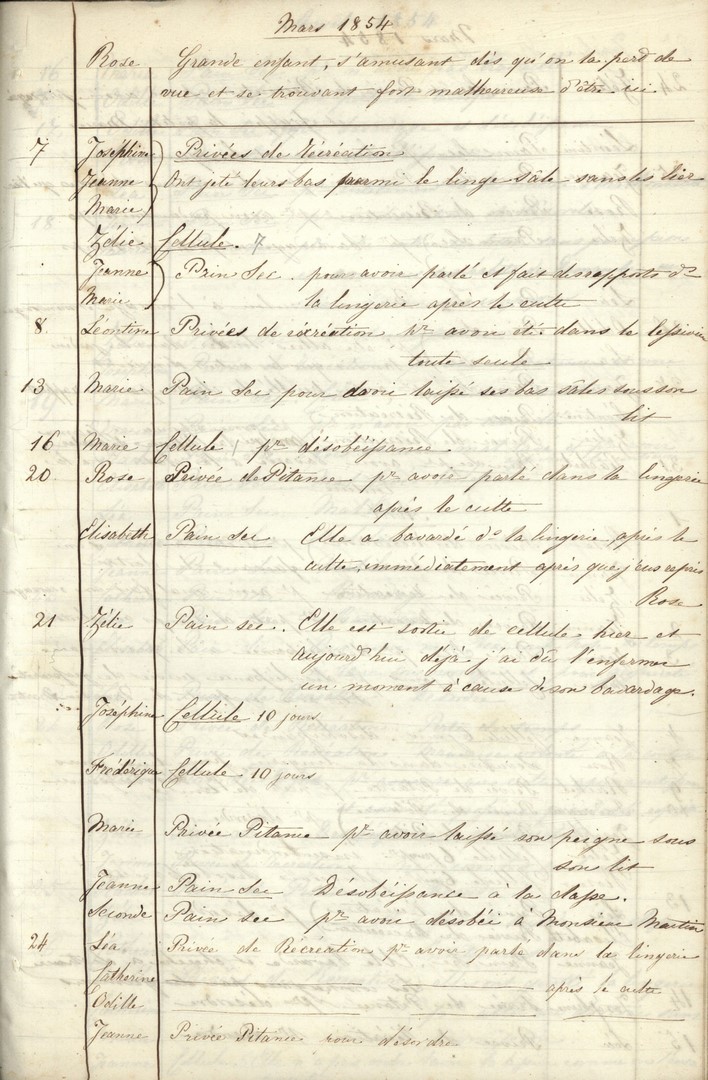 Mars 1854
Rose Grande enfant, s'amusant dès qu'on la perd de
vue et se trouvant fort malheureuse d'être ici.
7 Joséphine Privées de récréation
Jeanne Ont jeté leurs bas parmi le linge sâle sans les lier
Marie
Zélie Cellule. 7
Jeanne Pain Sec. pour avoir parlé et fait des rapports ds
Marie la lingerie après le culte
8 Léontine Privées de récréation pr avoir été dans le
toute seule
13 Marie Pain Sec pour avoir laissé ses bas sâles sous son
lit
16 Marie Cellule pr désobéissance
20. Rose Privée de Pitance pr avoir parlé dans la lingerie
après le culte
Elisabeth Pain Sec Elle a bavardé ds la lingerie, après le
culte, immédiatement après que j'eus repris
Rose
21 Zélie Pain sec. Elle est sortie de cellule hier et
aujourd'hui déjà j'ai dû l'enfermer
un moment à cause de son bavardage.
Joséphine Cellule 10 jours
Frédérique Cellule 10 jours
Marie Privée Pitance pr avoir laissé son peigne sous
son lit
Jeanne Pain Sec Désobéissance à la classe.
Seconde Pain sec pr avoir désobéi à Monsieur Martin
24 Léa Privée de Récréation pr avoir parlé dans la lingerie
Catherine après le culte
Odille
Jeanne Privée Pitance pour désordre